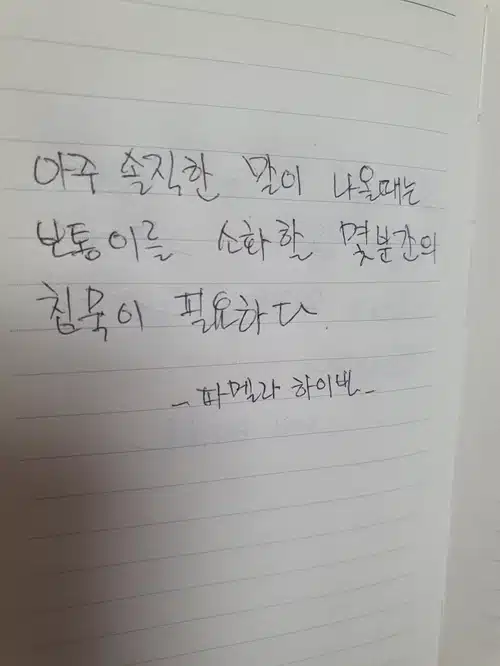 아주 솔직한 말이 나올때는
보통이를 소화할 몇분간의
침묵이 필요하다.
- 파멜라 하이벤 -